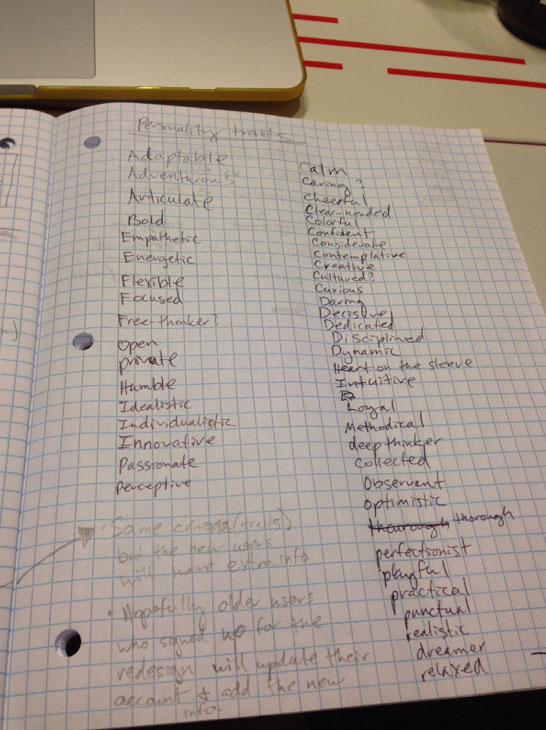 Personality traits
Adaptable
Adventurous
Articulate
Bold
Empathetic
Energetic
Flexible
Focused
Free-thinker?
Open
private
Humble
Idealistic
Individualistic
Innovative
Passionate
Perceptive
• Same criteria (traits)
but the new users
will have extra info
• Hopefully older users
who signed up for the
redesign will update their
account & add the new
info.
Calm
Caring?
Cheerful
Clear-headed
Colorful
Confident
Considerate
Contemplative
Creative
Cultured?
Curious
Daring
Decisive
Dedicated
Disciplined
Dynamic
Heart on the sleeve
Intuitive
Loyal
Methodical
deep thinker
collected
Observant
Optimistic
thourough thorough
perfectionist
playful
practical
punctual
realistic
dreamer
relaxed